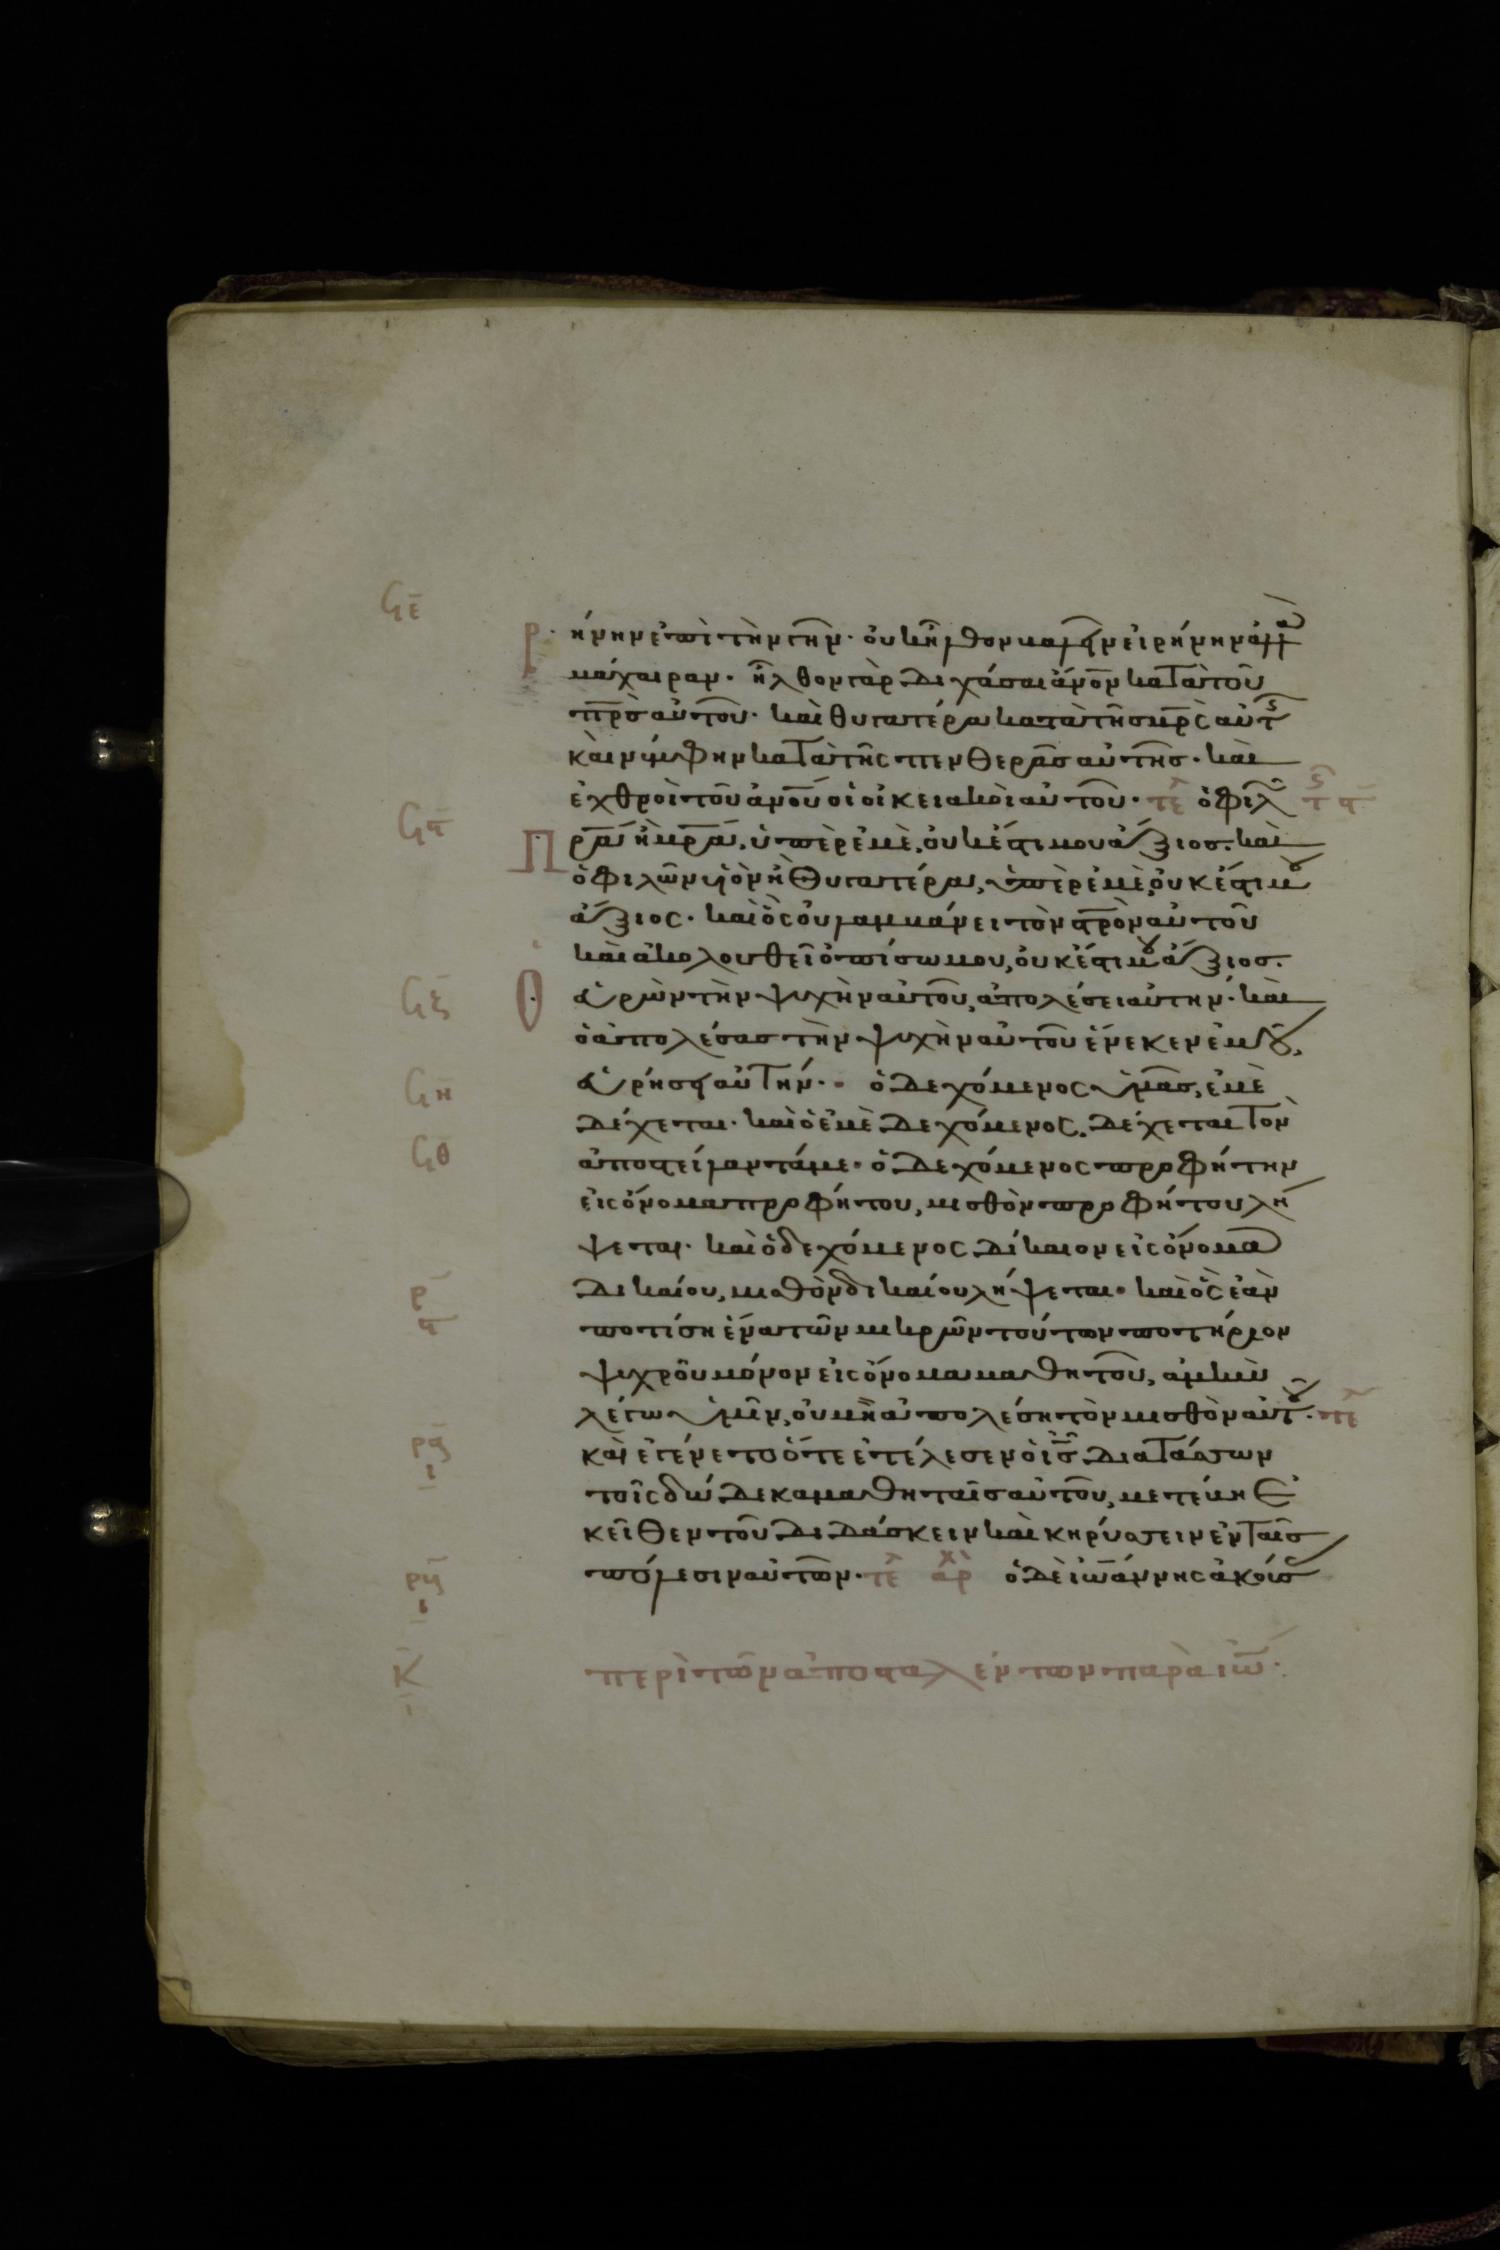 ϟε
ήνην ἐπὶ τὴν γῆν· οὐκ ἦλθον βαλεῖν εἰρήνην ἀλλὰ
μάχαιραν· ἦλθον γὰρ διχάσαι ἄνον κατὰ τοῦ
πρσ αὐτοῦ· καὶ θυγατέρα κατὰ τῆς μρς αὐτῆς
καὶ νύμφην κατὰ τῆς πενθερᾶς αὐτῆς· καὶ
ἐχθροὶ τοῦ ἀνου οἱ οἰκειακοὶ αὐτοῦ· τε ὁ φιλῶν
ϟϛ
πρα ἢ μρα, ὑπὲρ ἐμὲ, οὐκ ἔστι μου ἄξιος· καὶ
ὁ φιλῶν υἱὸν ἢ θυγατέρα, ὑπὲρ ἐμὲ, οὐκ ἔστι μου
ἄξιος· καὶ ὃς οὐ λαμβάνει τὸν στρὸν αὐτοῦ
καὶ ἀκολουθεῖ ὀπίσω μου, οὐκ ἔστι μου ἄξιος.
ϟζ
Ὁ εὑρὼν τὴν ψυχὴν αὐτοῦ, ἀπολέσει αὐτήν· καὶ
ὁ ἀπολέσας τὴν ψυχὴν αὐτοῦ ἕνεκεν ἐμοῦ,
ϟη
εὑρήσει αὐτήν· ὁ δεχόμενος ὑμᾶς, ἐμὲ
δέχεται· καὶ ὁ ἐμὲ δεχόμενος, δέχεται τὸν
ϟθ
ἀποστείλαντά με· ὁ δεχόμενος προφήτην
εἰς ὄνομα προφήτου, μισθὸν προφήτου λή
ψεται· καὶ ὁ δεχόμενος δίκαιον εἰς ὄνομα
ρ
δικαίου, μισθὸν δικαίου λήψεται· καὶ ὃς ἐὰν
ποτίση ἕνα τῶν μικρῶν τούτων ποτήριον
ψυχροῦ μόνον εἰς ὄνομα μαθητοῦ, ἀμὴν
λέγω ὑμῖν, οὐ μὴ ἀπολέση τὸν μισθὸν αὐτοῦ· τε
καὶ ἐγένετο ὅτε ἐτέλεσεν ὁ ις διατάσσων
τοῖς δώδεκα μαθηταῖς αὐτοῦ, μετέβη ἐ
κεῖθεν τοῦ διδάσκειν καὶ κηρύσσειν ἐν ταῖς
πόλεσιν αὐτῶν· τε αρχ ὁ δὲ ἰωάννης ἀκούσ
Κ
περὶ τῶν ἀποσταλέντων παρὰ ιω·